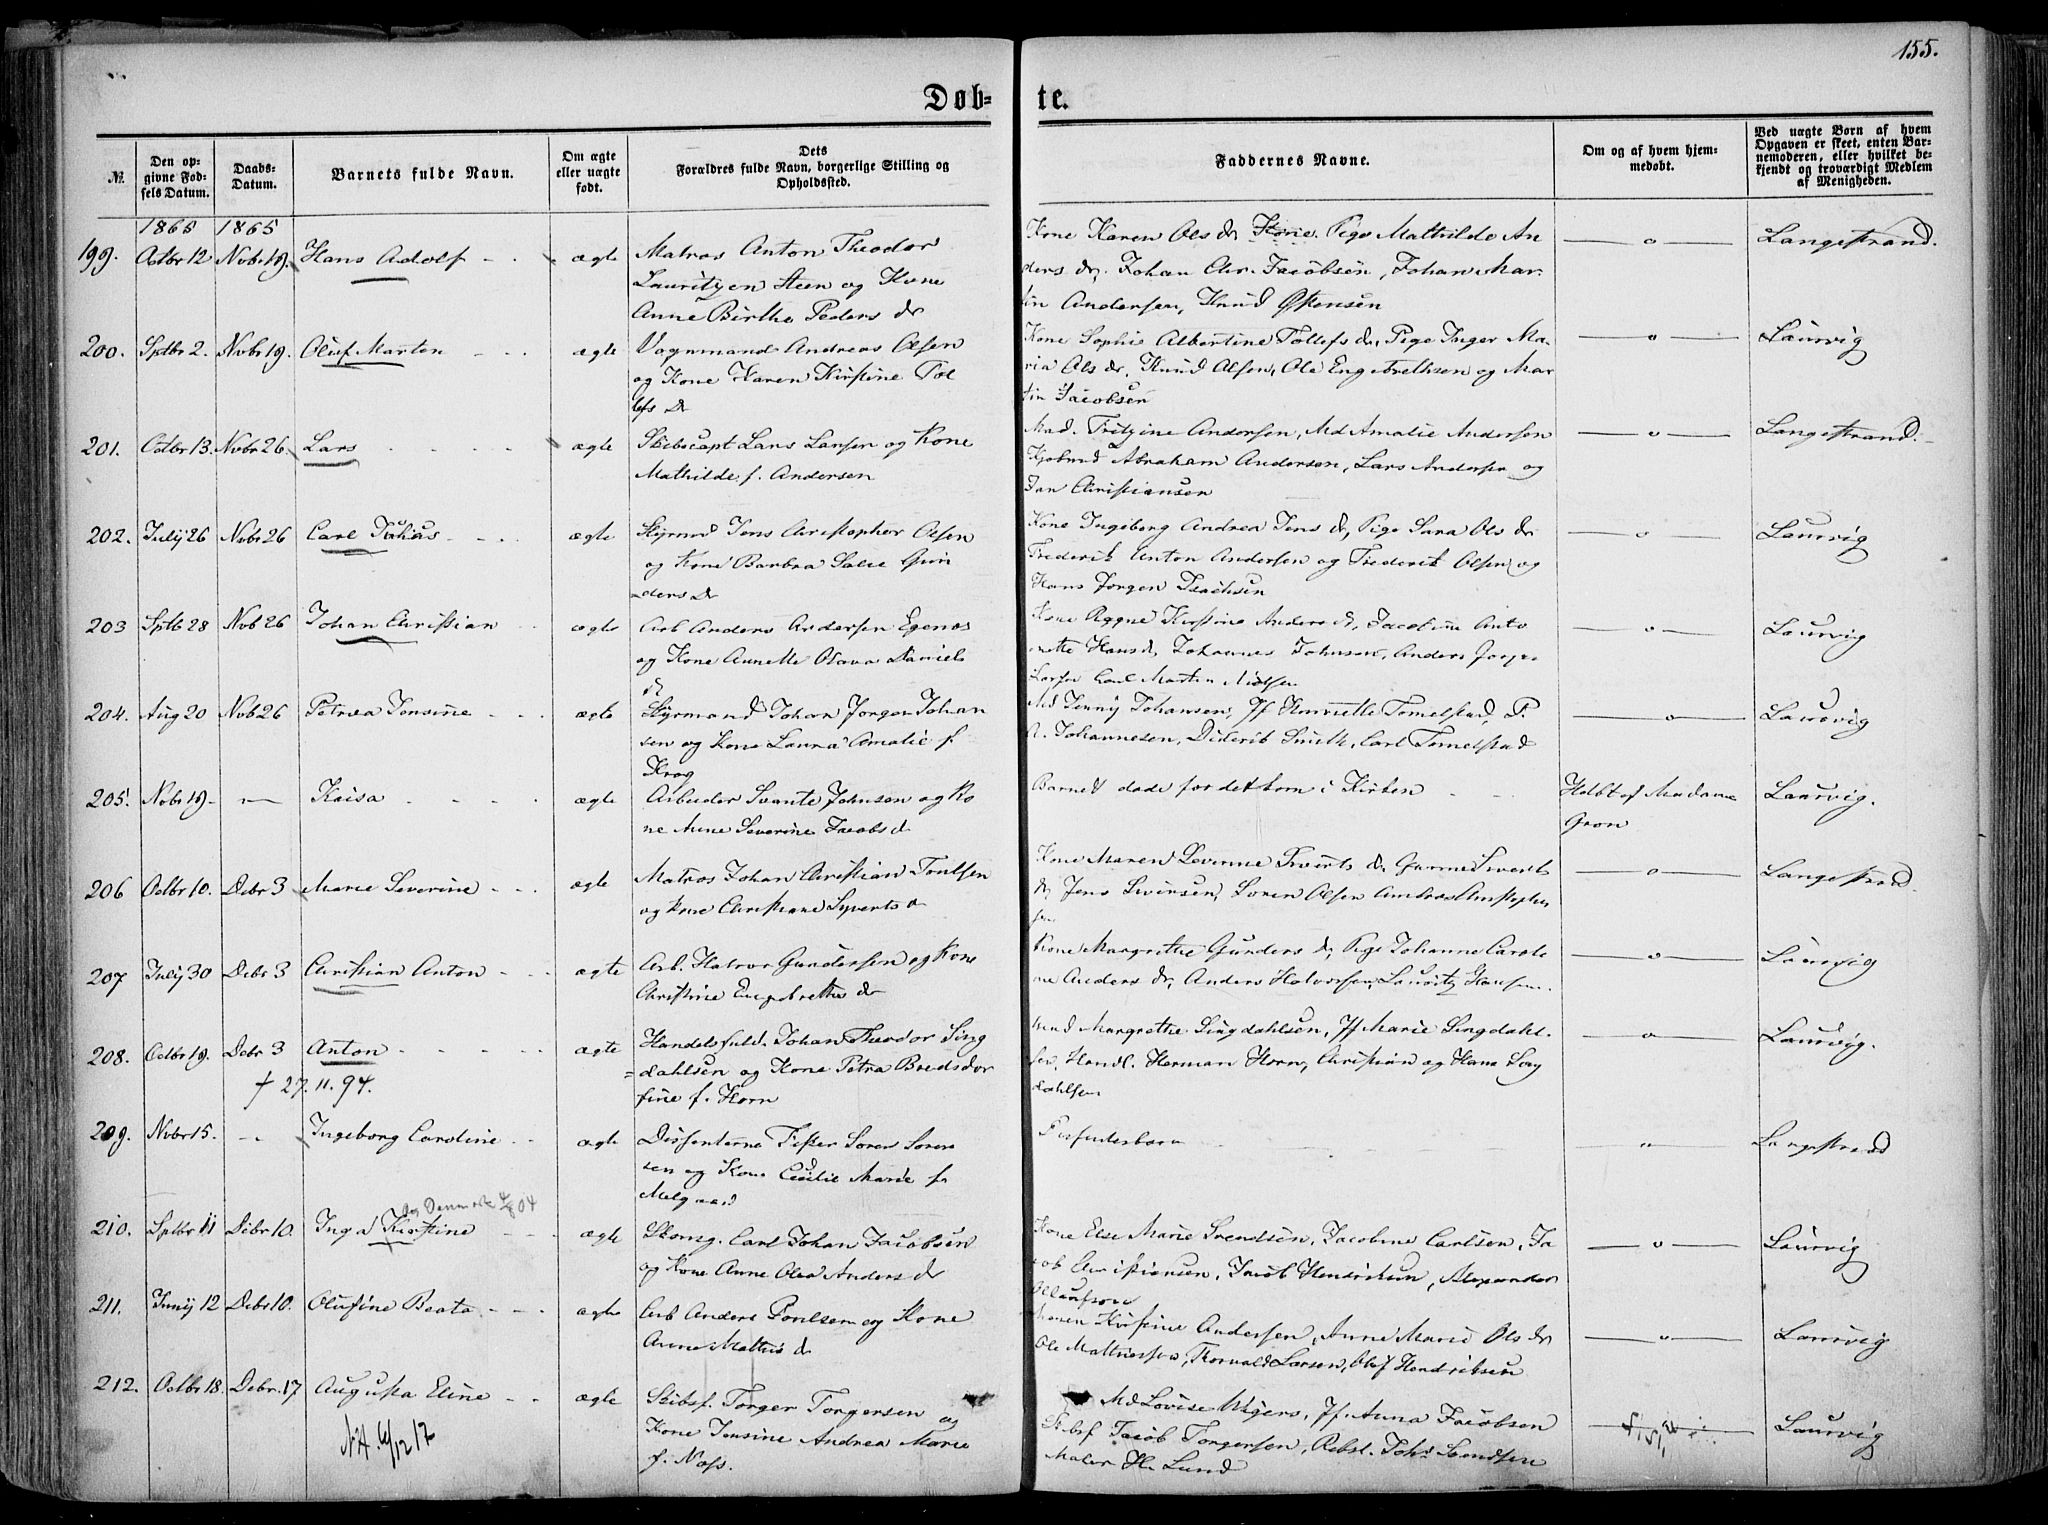 155.
Døb-
te.
№.
Den op-
givne Fød-
sels Datum.
Daabs-
Datum.
Barnets fulde Navn.
Om ægte
eller uægte
født.
Dets
Forældres fulde Navn, borgerlige Stilling og
Opholdssted.
Faddernes Navne.
Om og af hvem hjem-
medøbt.
Ved uægte Børn af hvem
Opgaven er skeet, enten Bar-
nemoderen, eller hvilket be-
kjendt og troværdigt Medlem
af Menigheden.
1865 1865
199. Octbr 12 Nvbr 19. Hans Adolf - - ægte Matros Anton Theodor
Lauritzen Steen og Kone
Anne Birthe Peders dr
Kone Karen Ols dr Kone. Pige Mathilde An
ders dr. Johan Chr. Jacobsen, Johan Mar-
tin Andersen, Knud Ostensen
— o — Langestrand.
200. Sptbr 2. Nvbr 19. Oluf Marten - - ægte Vognmand Andreas Olsen
og Kone Karen Kirstine Tol
lefs Dr
Kone Sophie Albertine Tollefs dr, Pige Inger Ma-
ria Ols dr. Knud Olsen, Ole Engebrethsen og Mar
tin Jacobsen
— o — Laurvig
201. Octbr 13. Nvbr 26 Lars - - ægte Skibscapt Lars Larsen og Kone
Mathilde f. Andersen
Mad. Fritzine Andersen, Md Amalie Andersen
Kjøbmd Abraham Andersen, Lars Andersen og
Jan Christiansen
— o — Langestrand.
202. Julÿ 26 Nvbr 26 Carl Julius - - ægte Styrmd Jens Christopher Olsen
og Kone Barbra Salie Gun
ders Dr
Kone Ingeborg Andrea Jens dr, Pige Sara Ols dr
Frederik Anton Andersen og Frederik Olsen og
Hans Jørgen Isachsen
— o — Laurvig
203 Sptb 28 Nvb 26 Johan Christian - ægte Arb Anders Andersen Egenes
og Kone Annette Olava Daniels
dr
Kone Kirstine Anders dr, Jacobine Anto
nette Hans d, Johannes Johnsen, Anders Jørgen
Larsen Carl Martin Nielsen
— o — Laurvig
204. Aug 20 Nvb 26 Petrea Jensine - - ægte Styrmand Johan Jørgen Johan
sen og Kone Laura Amalie f.
Krog
Md Jenny Johansen, Jf Henriette Tomelstad, P.
A. Johannesen, Diderik Smith, Carl Tomelstad
— o — Laurvig
205. Nvbr 19. — Kaisa - - ægte Arbeider Svante Johnsen og Ko
ne Anne Severine Jacobs d
Barnet døde før det kom i Kirken
Hdbt af Madame
Gron
Laurvig.
206 Octbr 10. Debr 3 Marie Severine - - ægte Matros Johan Christian Poulsen
og Kone Christiane Syverts d
Kone Maren Severine Siverts dr, Siverts
dr, Jens Sivertsen, Søren Olsen Christophe
sen
— o — Langestrand
207 Julÿ 30 Debr 3 Christian Anton - - ægte Arb. Halvor Gundersen og Kone
Christine Engebrethss dr
Kone Margrethe Gunders dr, Pige Johanne Caroli
ne Anders dr, Anders Halvorsen, Lauritz Hansen.
— o — Laurvig
208. Octbr 19. Debr 3 Anton - - ægte Handelsfuld. Johan Theodor Sing
=dahlsen og Kone Petra Bredsdor
fine f. Horn
† 27. 11. 94.
Md Margrethe Singdahlsen, Jf Marie Singdahl-
sen, Handl. Herman Horn, Christian og Hans Sing
dahlsen
— o — Laurvig.
209. Nvbr 15. — Ingeborg Caroline - - ægte Dissenterne Fisker Søren Søren
sen og Kone Cecilie Marie f.
Melgaard
Dissenterbarn - " Langestrand
Danmark 4/8 04
210. Sptbr 11 Debr 10. Inga Kirstine - - ægte Skomg. Carl Johan Jacobsen
og Kone Anne Olea Anders dr
Kone Else Marie Svendsen, Jacobine Carlsen, Ja
cob Christiansen, Jacob Hendriksen, Alexander
— o — Laurvig
211. Junÿ 12 Debr 10. Olufine Beate - - ægte Arb Anders Poulsen og Kone
Anne Mathis d
Maren Kirstine Andersen, Anne Marie Ols dr
Ole Mathiesen, Thorvald Larsen, Oluf Hendriksen
— o — Laurvig
212. Octbr 18. Debr. 17 Augusta Eline - - ægte Skibsf. Torger Torgersen og
Kone Jensine Andrea Marie
f. Næss.
12 17
Md Lovise Wigers, Jf. Anna Jacobsen
Skbsf Jacob Torgersen, Rebsl. Johs Svendsen
Maler H. Lund
Laurvig